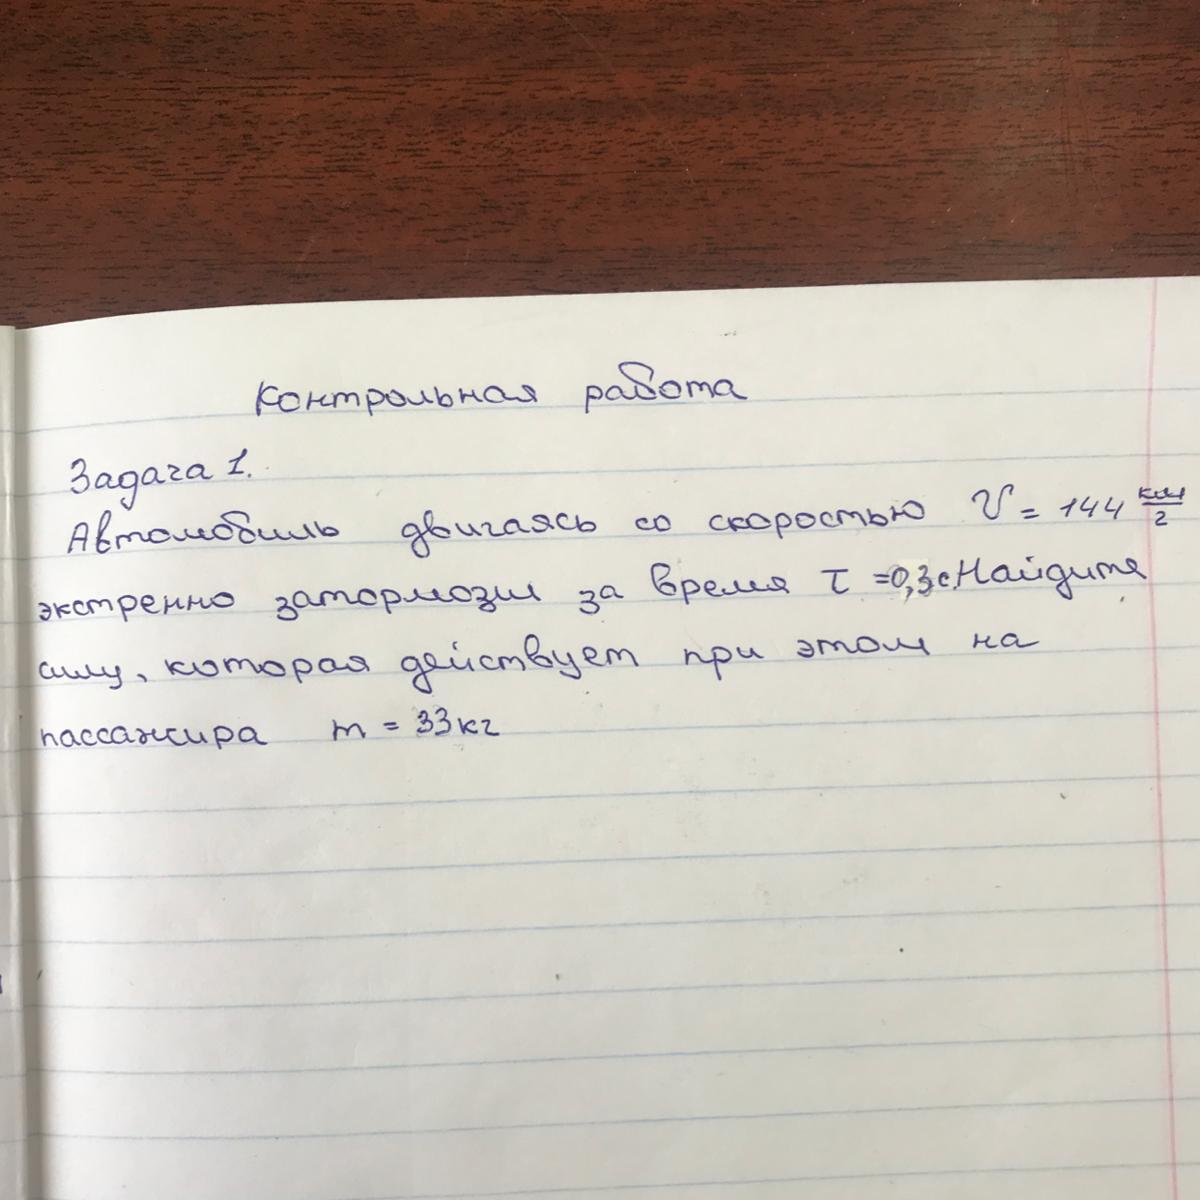 Контрольная работа
Задача 1.
Автомобиль двигаясь со скоростью V = 144 км/г
экстренно затормозил за время τ =0,3с.Найдите
силу, которая действует при этом на
пассажира m = 33кг